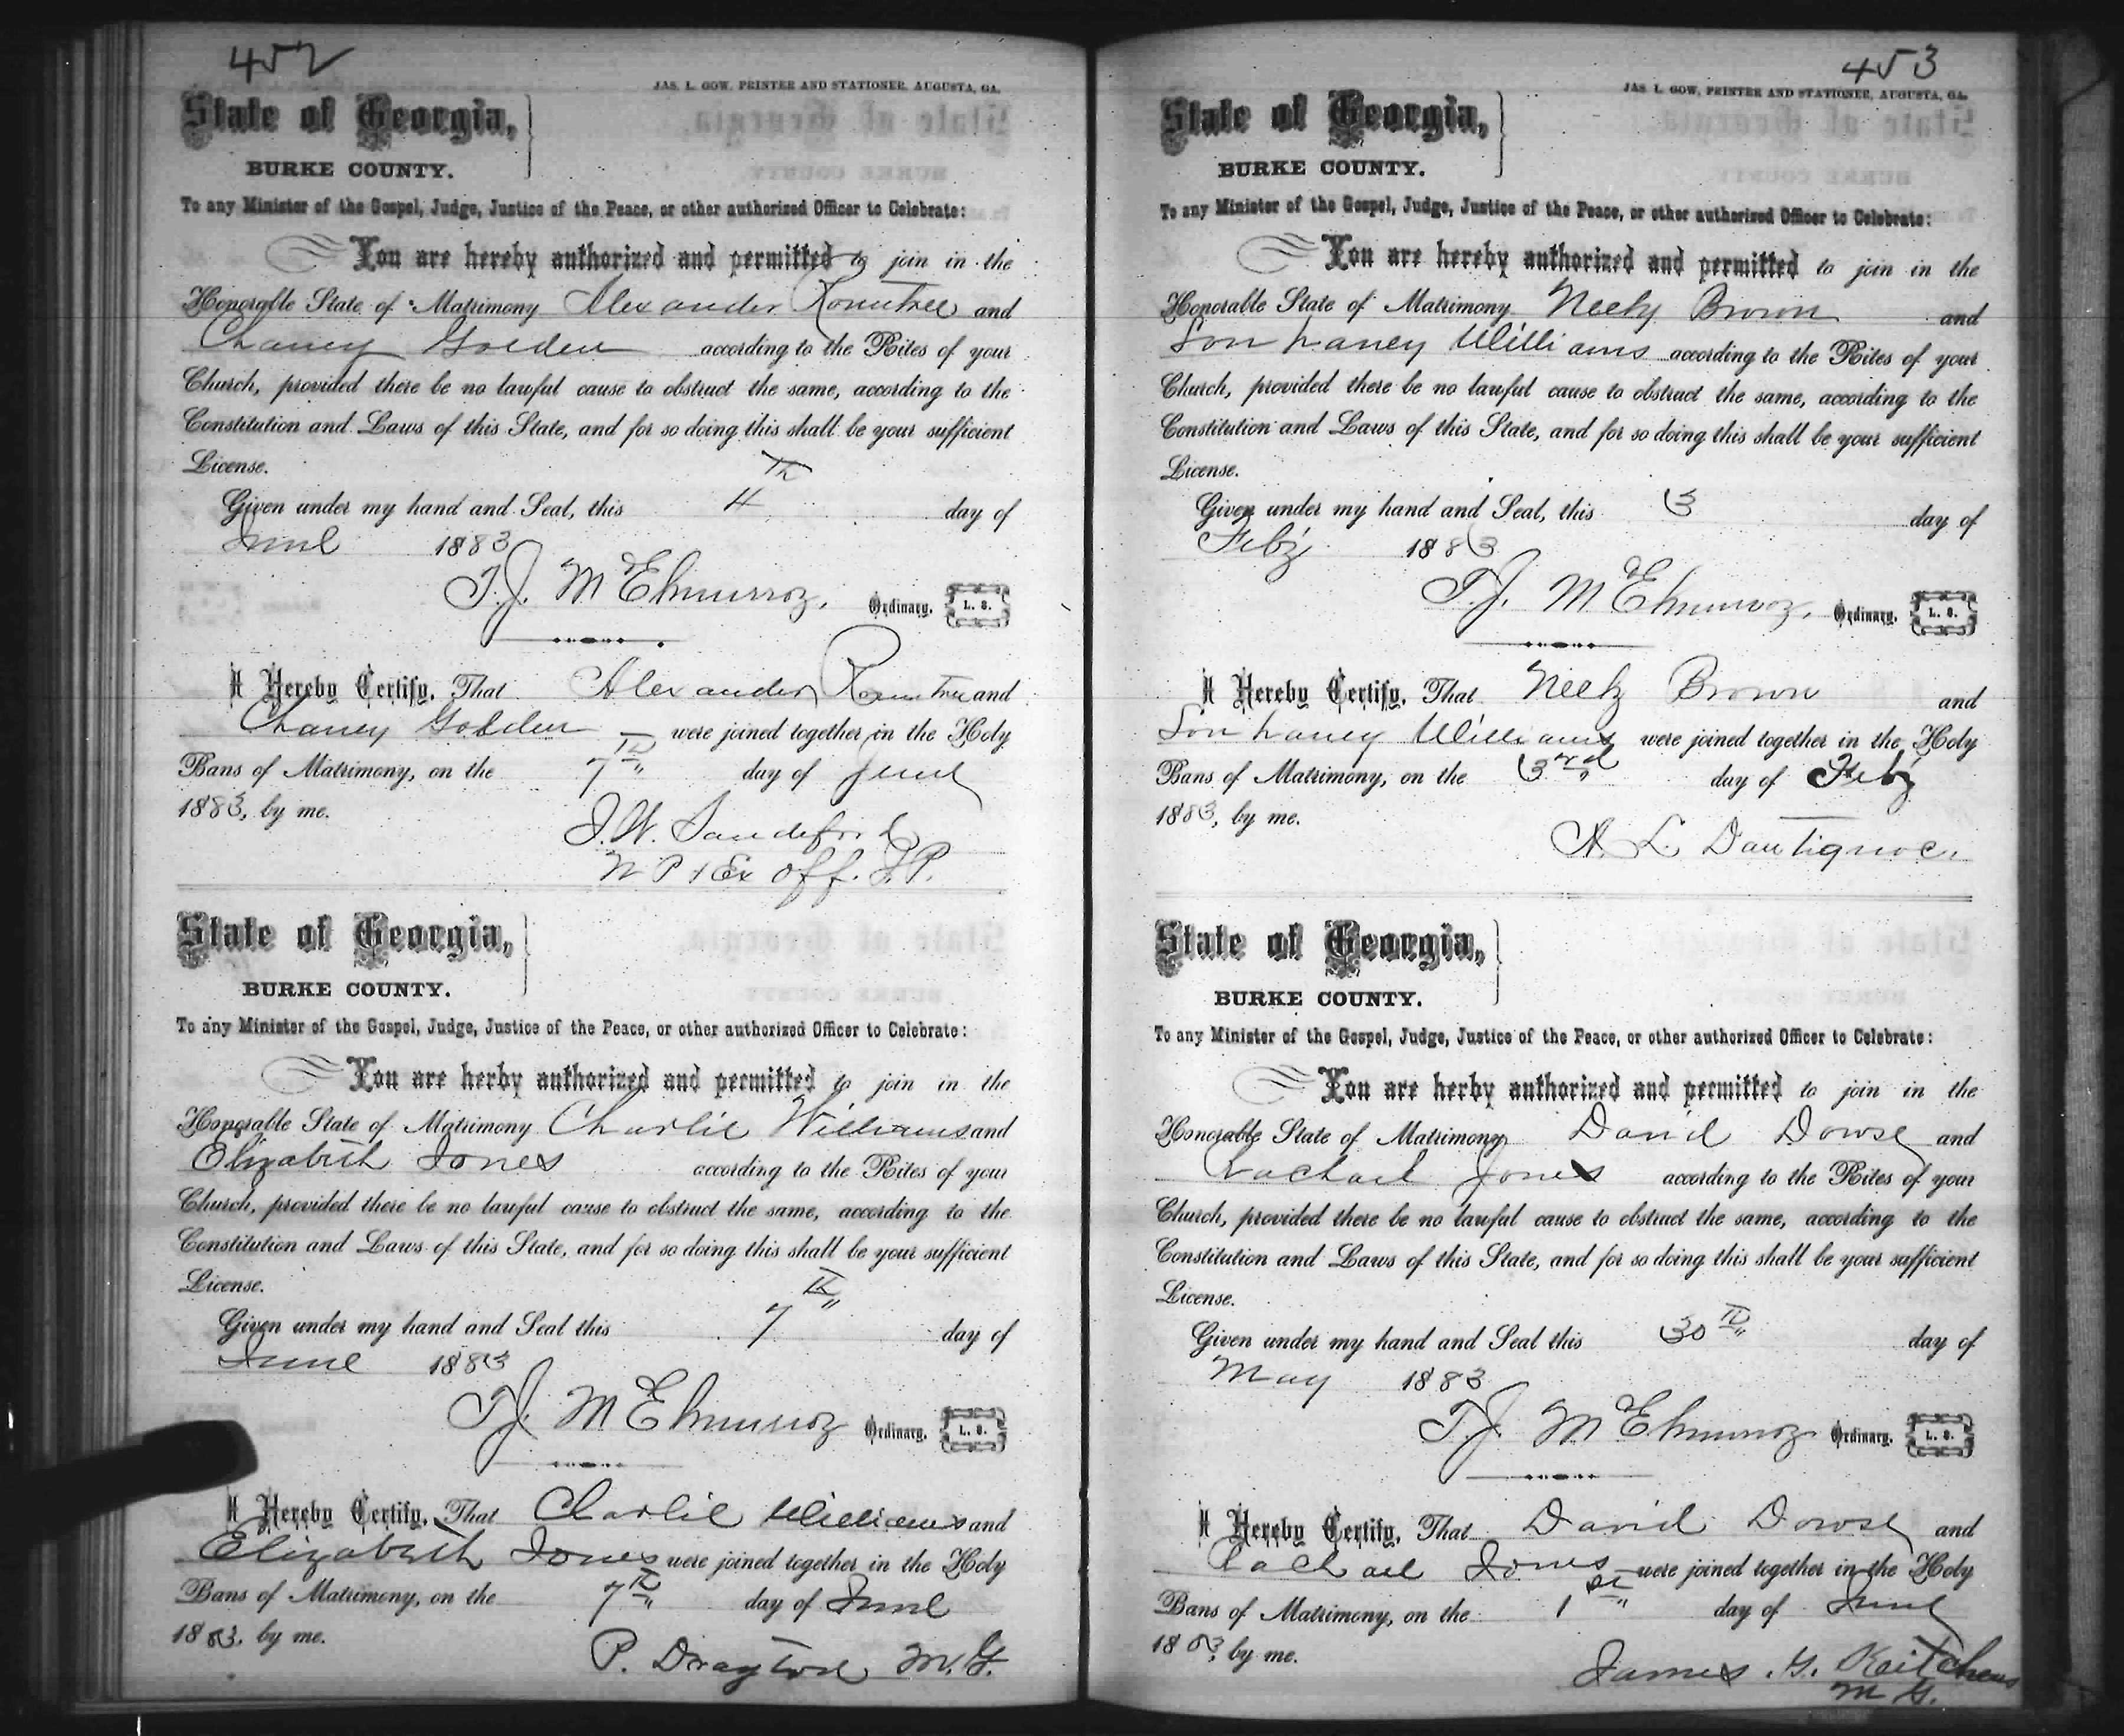 452
JAS. L. GOW, PRINTER AND STATIONER, AUGUSTA, GA.
State of Georgia,
BURKE COUNTY.
To any Minister of the Gospel, Judge, Justice of the Peace, or other authorized Officer to Celebrate:
You are hereby authorized and permitted to join in the
Honorable State of Matrimony Alexander Rountree and
Chaney Golden according to the Rites of your
Church, provided there be no lawful cause to obstruct the same, according to the
Constitution and Laws of this State, and for so doing this shall be your sufficient
License.
Given under my hand and Seal, this 4th day of
June 1883
T. J. McElmurray, Ordinary. L. S.
I Hereby Certify, That Alexander Rountree and
Chaney Golden were joined together in the Holy
Bans of Matrimony, on the 7th day of June
1883, by me.
J. W. Sandeford
N P & Ex off. J. P.
State of Georgia,
BURKE COUNTY.
To any Minister of the Gospel, Judge, Justice of the Peace, or other authorized Officer to Celebrate:
You are herby authorized and permitted to join in the
Honorable State of Matrimony Charlie Williams and
Elizabeth Jones according to the Rites of your
Church, provided there be no lawful cause to obstruct the same, according to the
Constitution and Laws of this State, and for so doing this shall be your sufficient
License.
Given under my hand and Seal this 7th day of
June 1883
T. J. McElmurray Ordinary. L. S.
I Hereby Certify, That Charlie Williams and
Elizabeth Jones were joined together in the Holy
Bans of Matrimony, on the 7th day of June
1883, by me.
P. Drayton M. G.
453
JAS. L. GOW, PRINTER AND STATIONER, AUGUSTA, GA.
State of Georgia,
BURKE COUNTY.
To any Minister of the Gospel, Judge, Justice of the Peace, or other authorized Officer to Celebrate:
You are hereby authorized and permitted to join in the
Honorable State of Matrimony Neely Brown and
Williams according to the Rites of your
Church, provided there be no lawful cause to obstruct the same, according to the
Constitution and Laws of this State, and for so doing this shall be your sufficient
License.
Given under my hand and Seal, this 3 day of
Feby 1883
T. J. McElmurray, Ordinary. L. S.
I Hereby Certify, That Neely Brown and
Williams were joined together in the Holy
Bans of Matrimony, on the 3rd day of Feby
1883, by me.
A. L. Dautignac.
State of Georgia,
BURKE COUNTY.
To any Minister of the Gospel, Judge, Justice of the Peace, or other authorized Officer to Celebrate:
You are herby authorized and permitted to join in the
Honorable State of Matrimony David Dowse and
Rachael Jones according to the Rites of your
Church, provided there be no lawful cause to obstruct the same, according to the
Constitution and Laws of this State, and for so doing this shall be your sufficient
License.
Given under my hand and Seal this 30th day of
May 1883
T. J. McElmurray Ordinary. L. S.
I Hereby Certify, That David Dowse and
Rachael Jones were joined together in the Holy
Bans of Matrimony, on the 1st day of June
1883, by me.
James. G. Keitchens
M G.